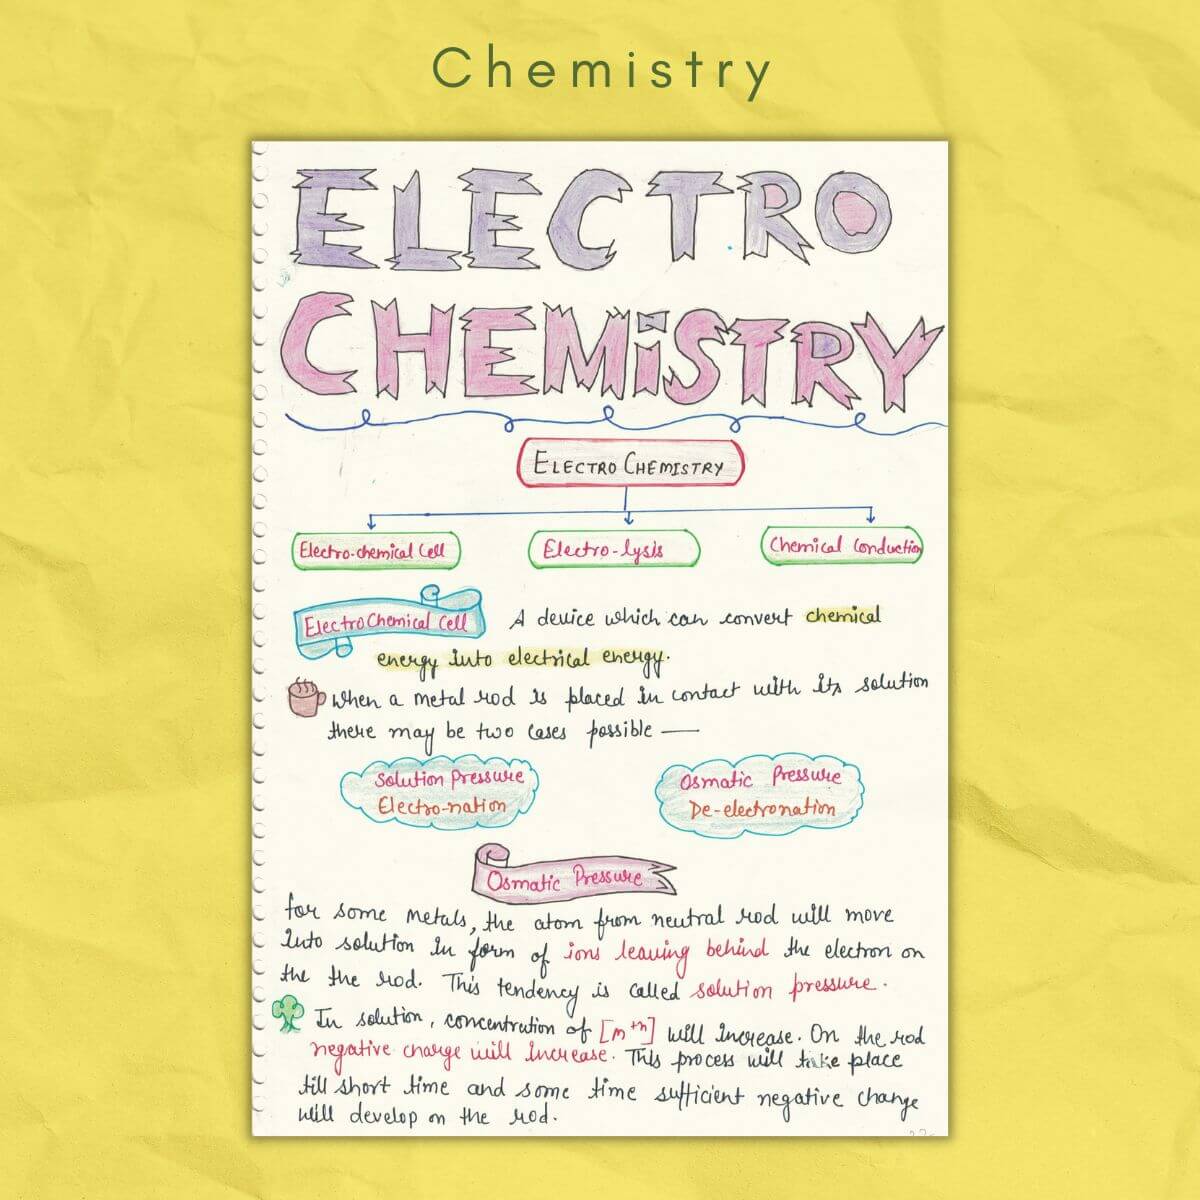 Chemistry
ELECTRO
CHEMiSTRY
ELECTRO CHEMISTRY
Electro-chemical Cell
Electro-lysis
Chemical Conduction
Electro Chemical Cell
A device which can convert chemical
energy into electrical energy.
When a metal rod is placed in contact with its solution
there may be two cases possible —
Solution Pressure
Electro-nation
Osmatic Pressure
De-electronation
Osmatic Pressure
for some metals, the atom from neutral rod will move
into solution in form of ions leaving behind the electron on
the the rod. This tendency is called solution pressure.
In solution, concentration of [m⁺ⁿ] will increase. On the rod
negative charge will increase. This process will take place
till short time and some time sufficient negative charge
will develop on the rod.